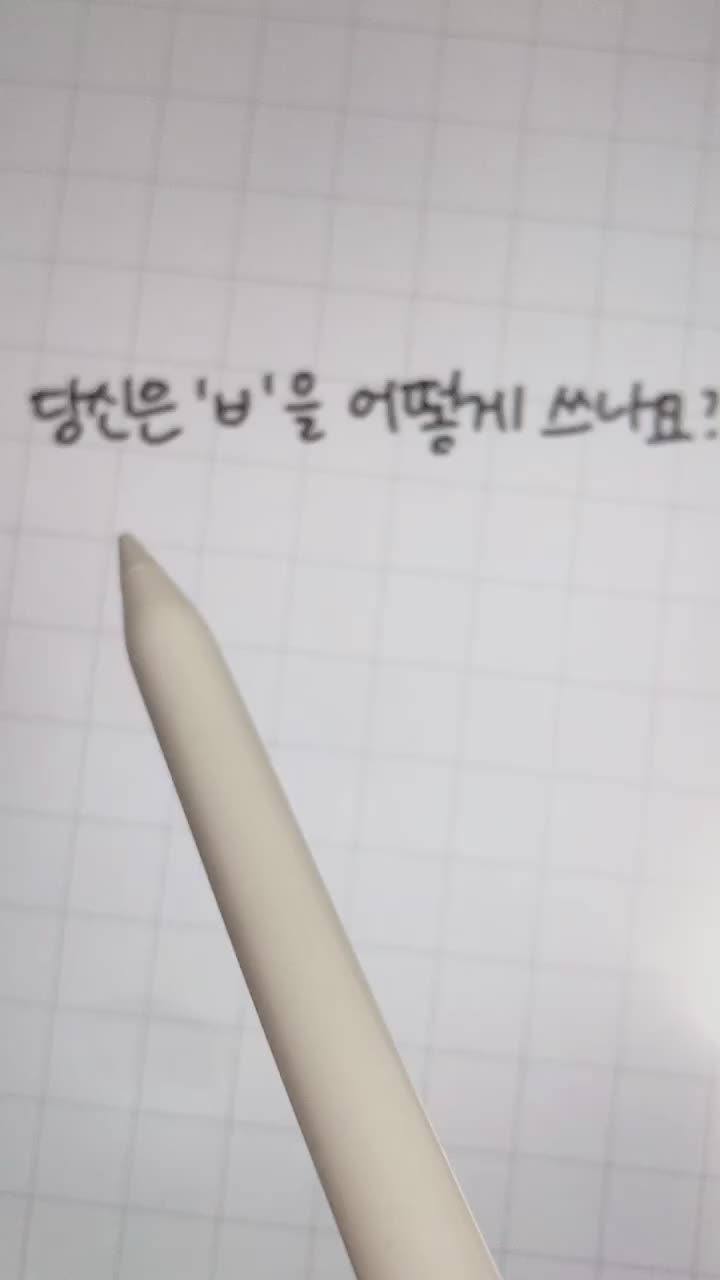 당신은 'ㅂ'을 어떻게 쓰나요?